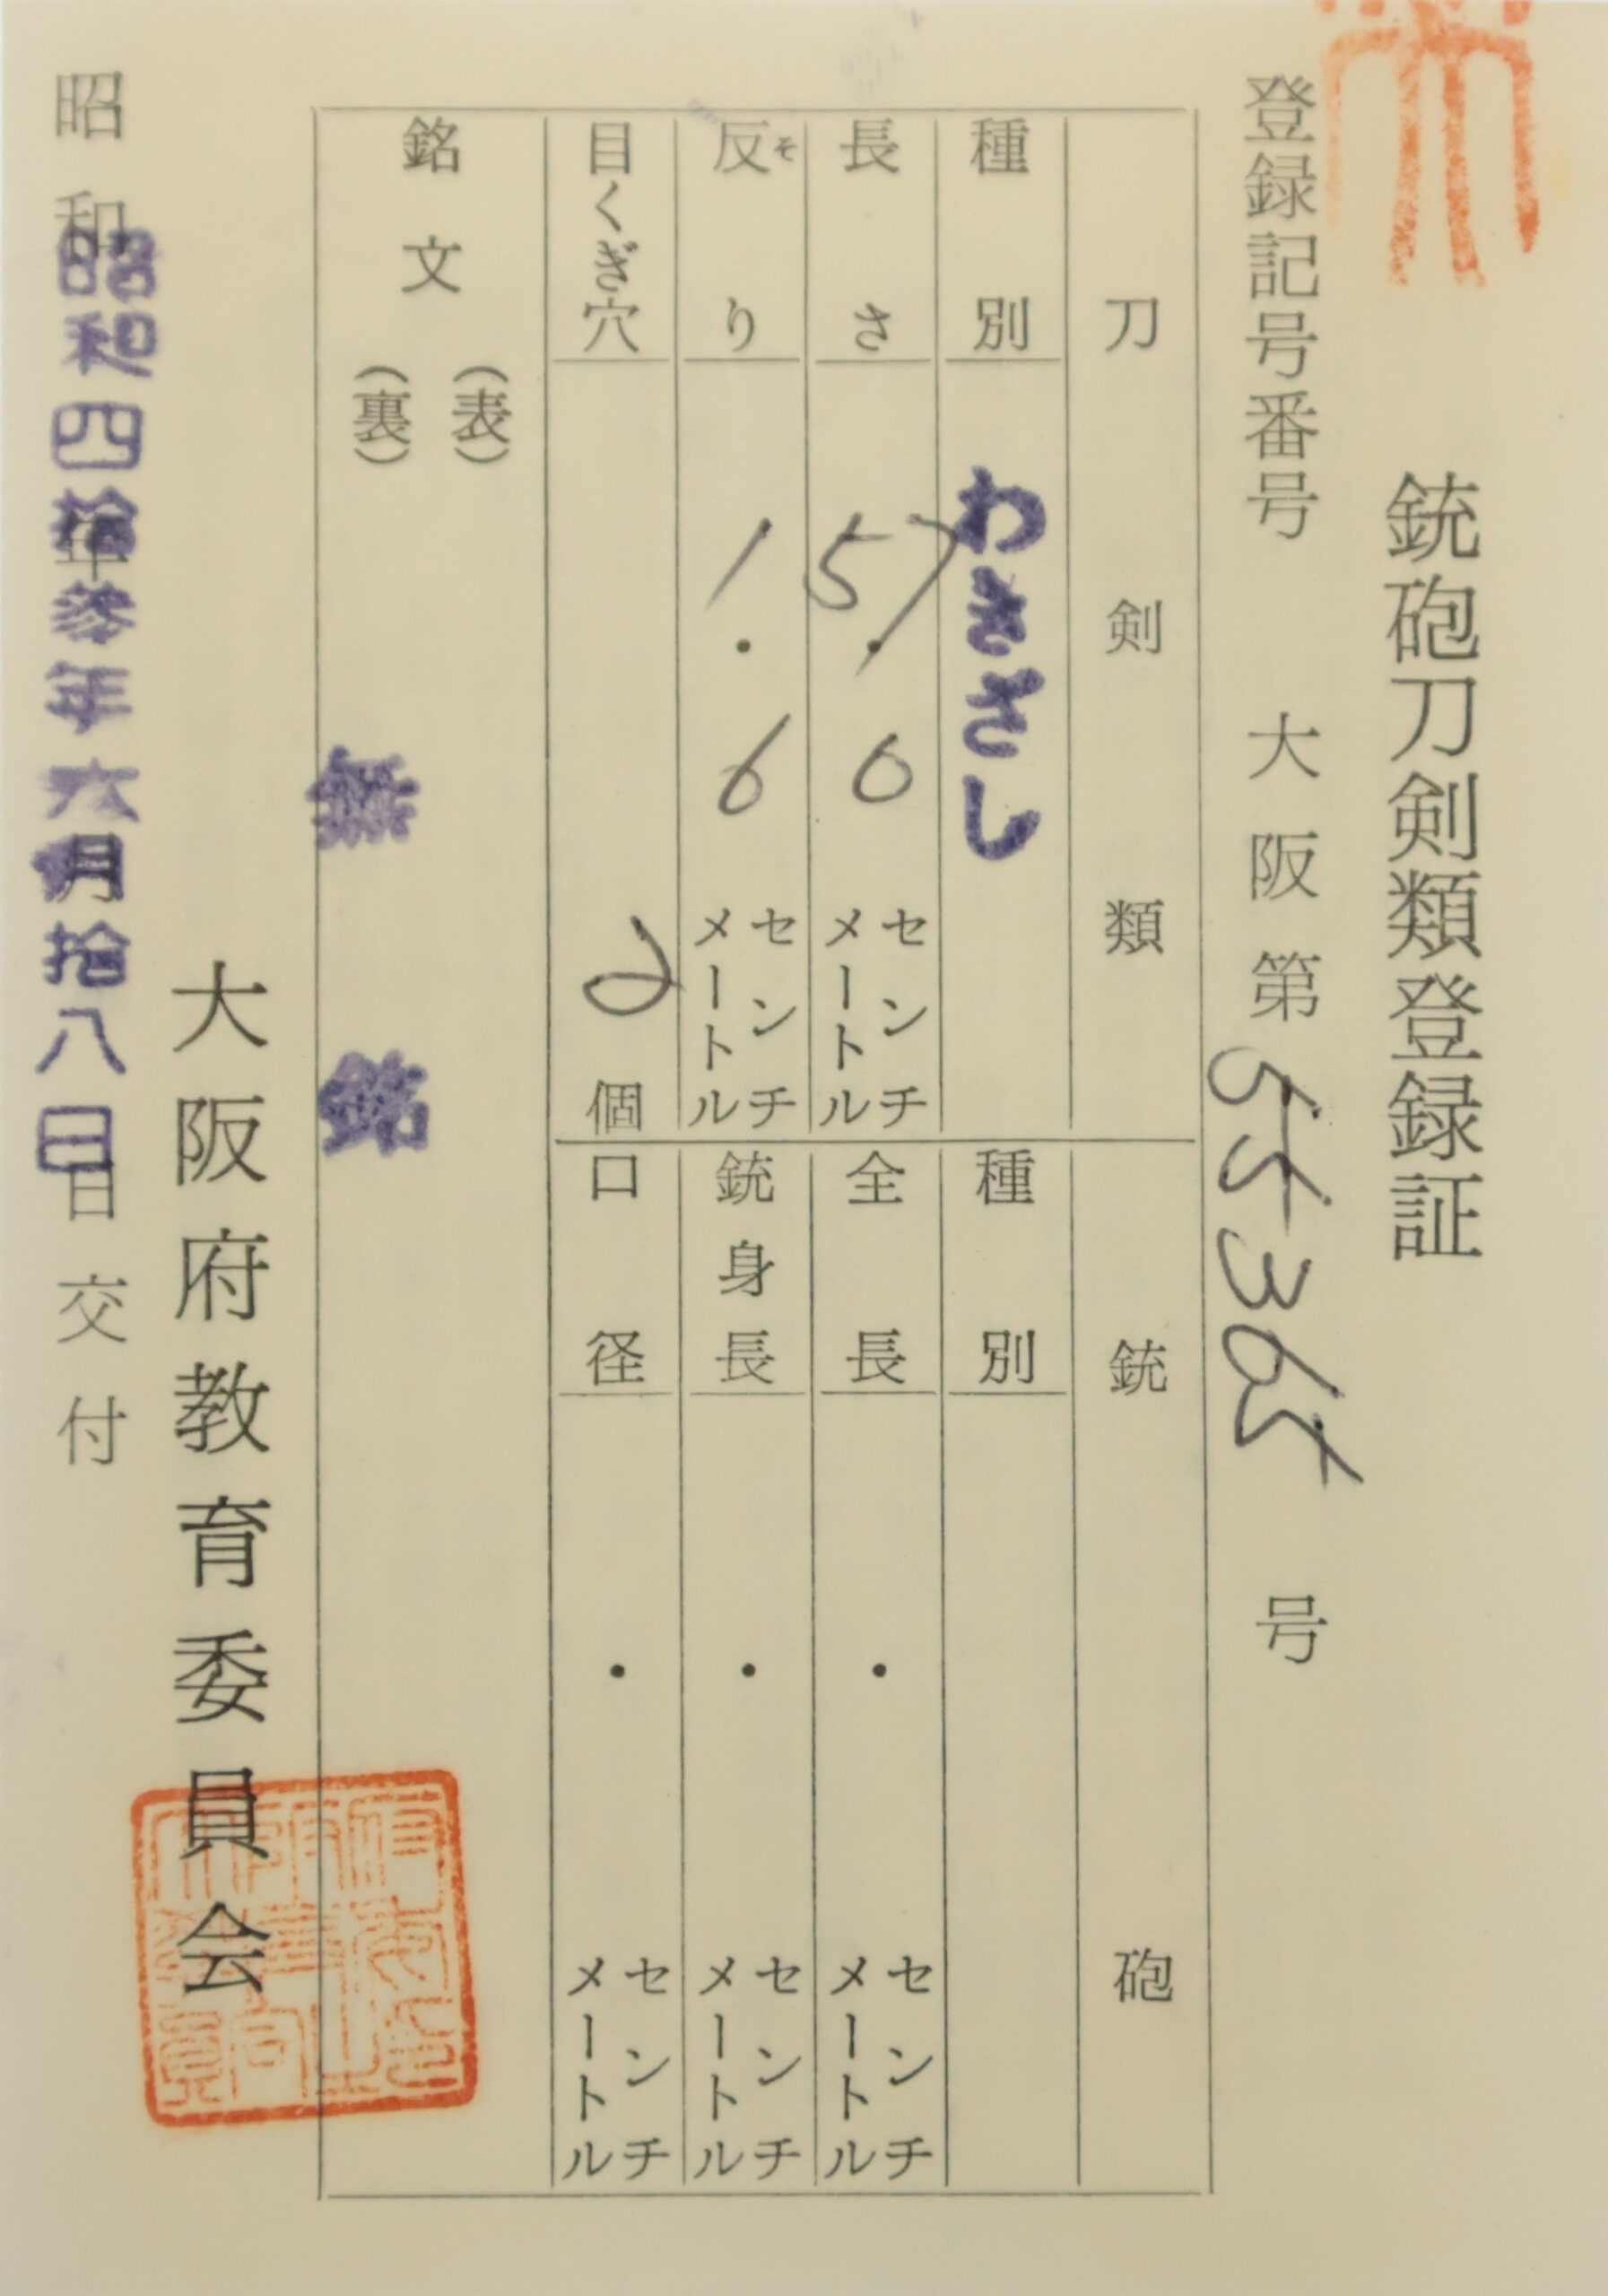 銃砲刀剣類登録証
登録記号番号 大阪第55365号
刀剣類
種別 わきざし
長さ 57.0 センチメートル
反り 1.6 センチメートル
そ
目くぎ穴 2個
銃砲
種別
全長 ・ センチメートル
銃身長 ・ センチメートル
口径 ・ センチメートル
銘文 (表)
(裏) 無銘
大阪府教育委員会
昭和 年 月 日交付
昭和四拾参年六月拾八日